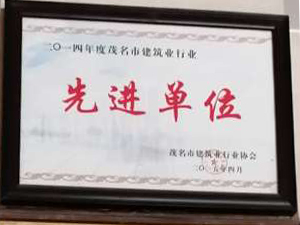 二〇一四年度茂名市建筑业行业
先进单位
茂名市建筑业行业协会
二〇一五年四月